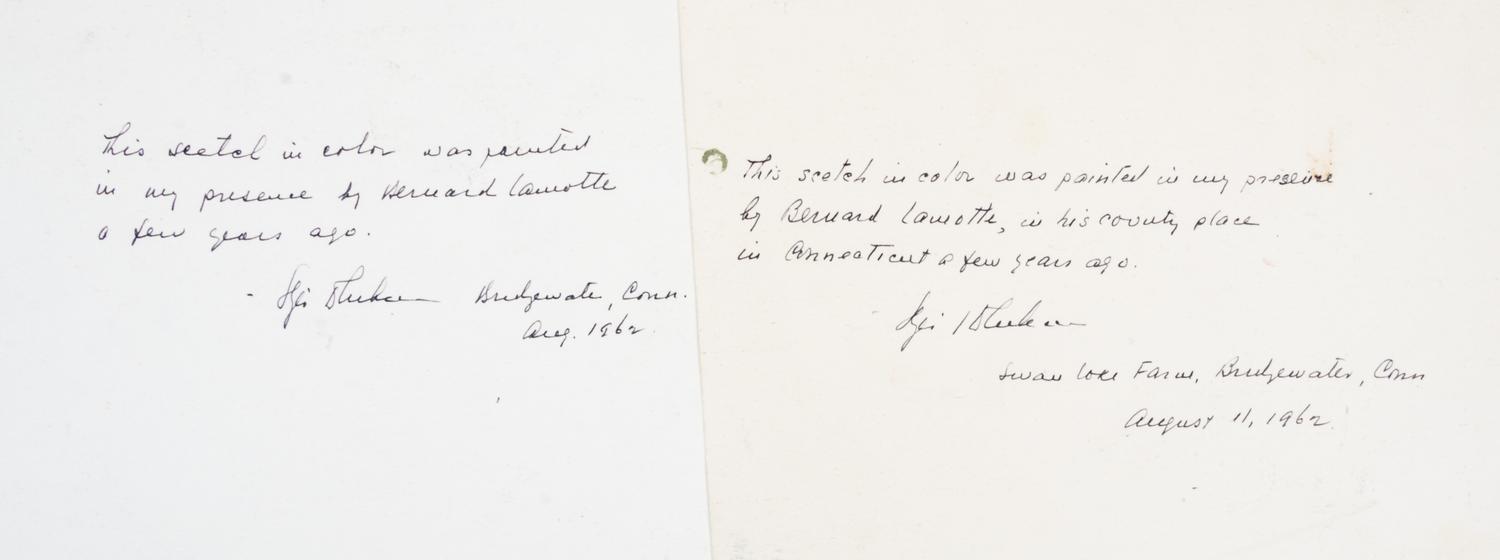 This scetch in color was painted
in my presence by Bernard Lamotte
a few years ago.
Bridgewater, Conn.
Aug. 1962
This scetch in color was painted in my presence
by Bernard Lamotte, in his county place
in Connecticut a few years ago.
Swan Lake Farm, Bridgewater, Conn
August 11, 1962.